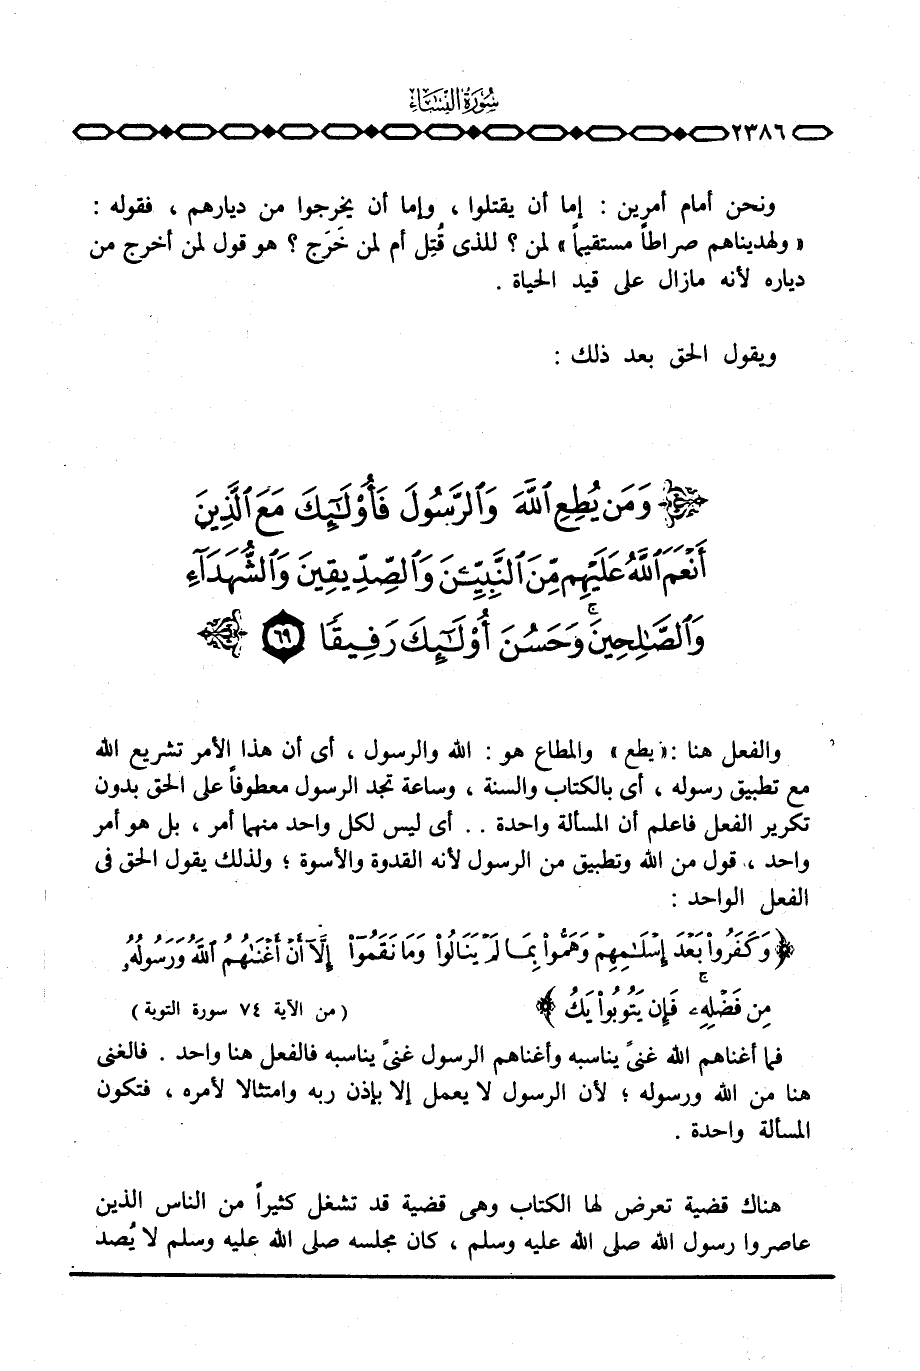 سورة النساء
٢٣٨٦
ونحن أمام أمرين : إما أن يقتلوا ، وإما أن يخرجوا من ديارهم ، فقوله :
« ولهديناهم صراطاً مستقيماً » لمن ؟ للذى قُتِل أم لمن خَرَج ؟ هو قول لمن أخرج من
دياره لأنه مازال على قيد الحياة .
ويقول الحق بعد ذلك :
وَمَن يُطِعِ ٱللَّهَ وَٱلرَّسُولَ فَأُوْلَٰٓئِكَ مَعَ ٱلَّذِينَ
أَنْعَمَ ٱللَّهُ عَلَيْهِم مِّنَ ٱلنَّبِيِّـۧنَ وَٱلصِّدِّيقِينَ وَٱلشُّهَدَآءِ
وَٱلصَّٰلِحِينَۚ وَحَسُنَ أُوْلَٰٓئِكَ رَفِيقًا ٦٩
والفعل هنا : « يطع » والمطاع هو : الله والرسول ، أى أن هذا الأمر تشريع الله
مع تطبيق رسوله ، أى بالكتاب والسنة ، وساعة تجد الرسول معطوفاً على الحق بدون
تكرير الفعل فاعلم أن المسألة واحدة . . أى ليس لكل واحد منهما أمر ، بل هو أمر
واحد ، قول من الله وتطبيق من الرسول لأنه القدوة والأسوة ؛ ولذلك يقول الحق فى
الفعل الواحد :
﴿ وَكَفَرُواْ بَعْدَ إِسْلَٰمِهِمْ وَهَمُّواْ بِمَا لَمْ يَنَالُواْ وَمَا نَقَمُوٓاْ إِلَّآ أَنْ أَغْنَىٰهُمُ ٱللَّهُ وَرَسُولُهُۥ
مِن فَضْلِهِۦۚ فَإِن يَتُوبُواْ يَكُ ﴾ (من الآية ٧٤ سورة التوبة)
فما أغناهم الله غنىً يناسبه وأغناهم الرسول غنىً يناسبه فالفعل هنا واحد . فالغنى
هنا من الله ورسوله ؛ لأن الرسول لا يعمل إلا بإذن ربه وامتثالا لأمره ، فتكون
المسألة واحدة .
هناك قضية تعرض لها الكتاب وهى قضية قد تشغل كثيراً من الناس الذين
عاصروا رسول الله صلى الله عليه وسلم ، كان مجلسه صلى الله عليه وسلم لا يُصد